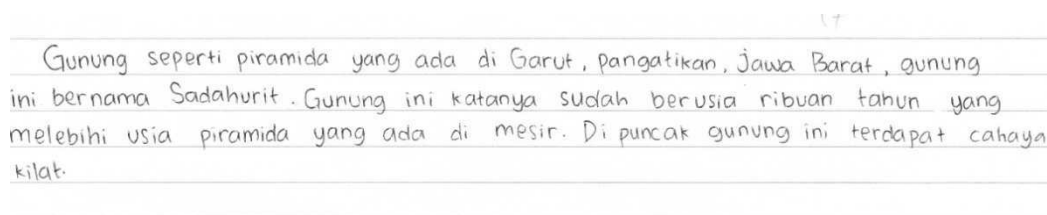 Gunung seperti piramida yang ada di Garut, pangatikan, jawa Barat, gunung
ini bernama Sadahurit. Gunung ini katanya sudah berusia ribuan tahun yang
melebihi usia piramida yang ada di mesir. Di puncak gunung ini terdapat cahaya
kilat.